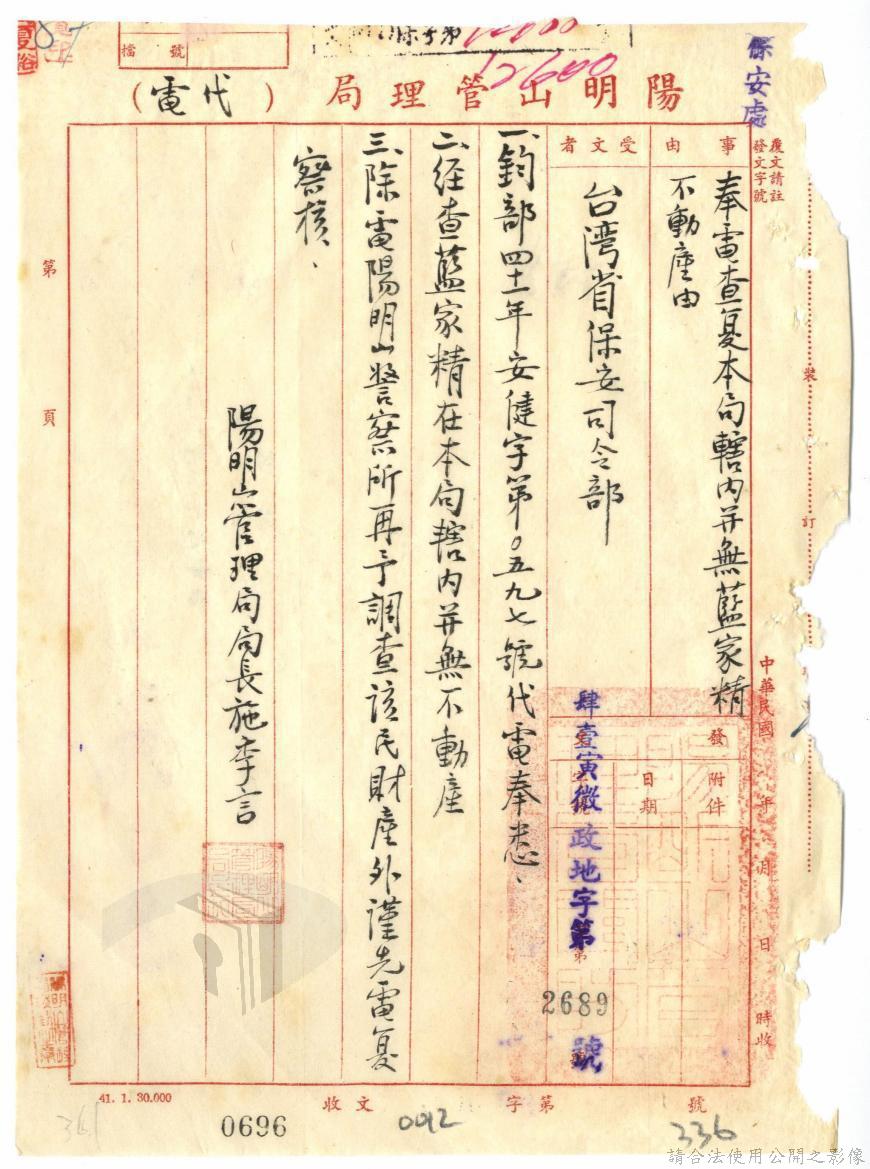 保安處
檔號
陽明山管理局（代電）
12600
覆文請註
發文字號
事由
奉電查复本局轄內并無藍家精
不動產由
受文者
台湾省保安司令部
發
附件
日期
肆壹寅微政地字第
2689
號
中華民國 年 月 日 時收
裝
訂
一、鈞部四十一年安健字第0五九七號代電奉悉、
二、经查藍家精在本局轄内并無不動產
三、除電陽明山警察所再予調查该民財產外謹先電复
察核、
陽明山管理局局長施季言
第 頁
41. 1. 30.000
收文 字第 號
0696
0012
336
361
請合法使用公開之影像